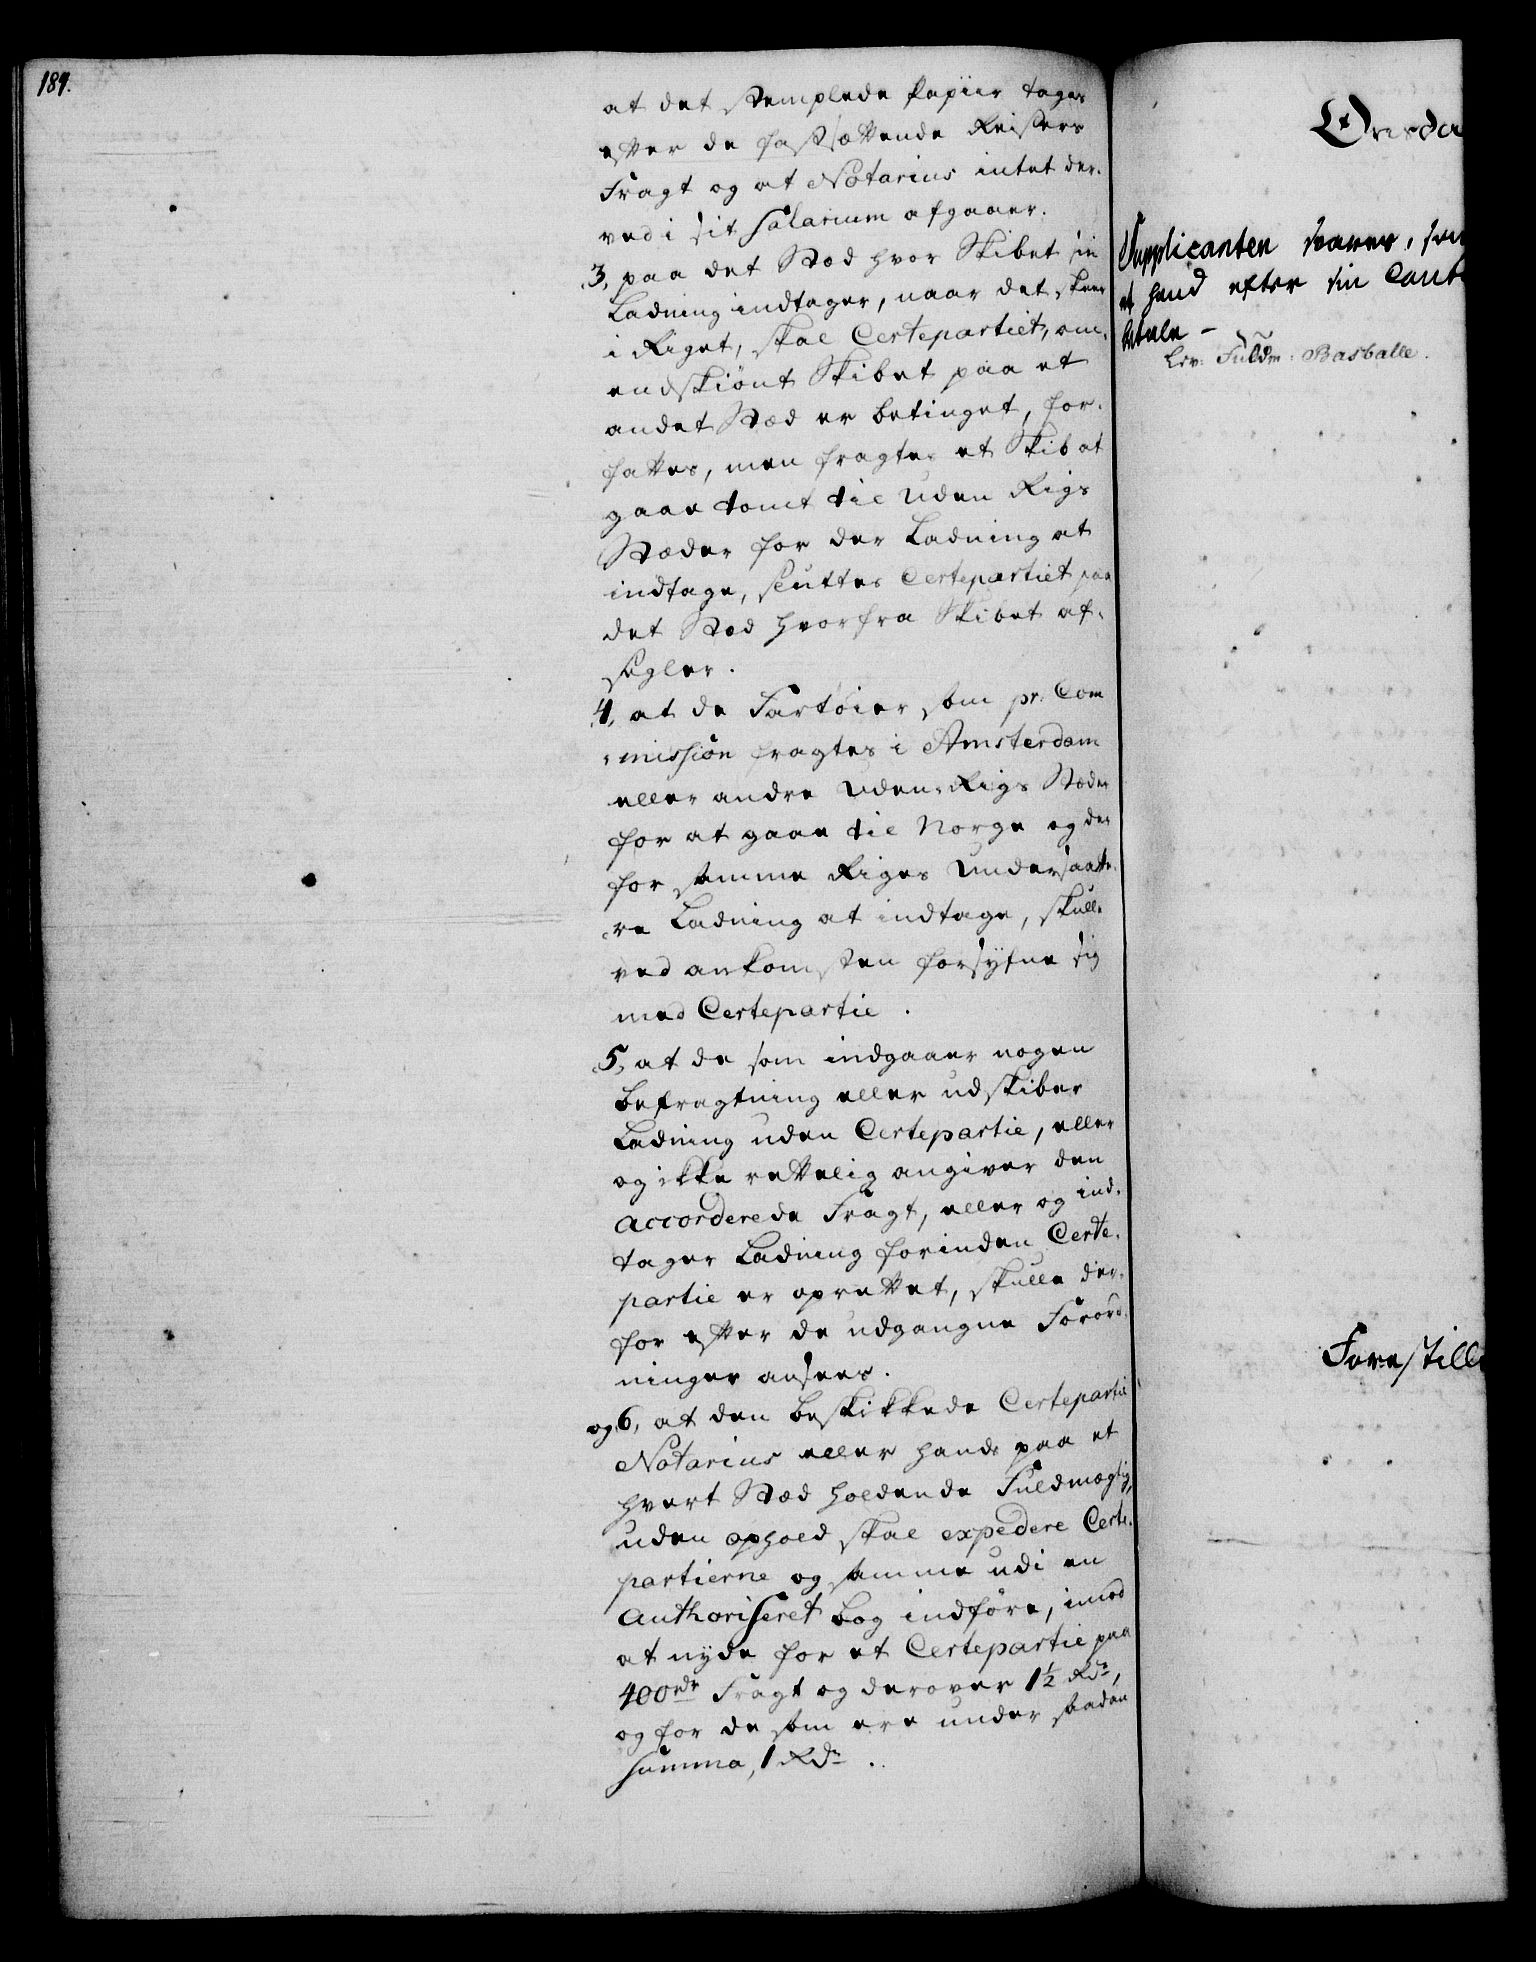 189.
at det stemplede Papiir tages
efter de fastsættende Reisers
Fragt og at Notarius intet der-
ved i sit Salarium afgaaer.
3, paa det Stæd hvor Skibet sin
Ladning indtager, naar det skeer
i Riget, skal Certepartiet, om-
endskiönt Skibet paa et
andet Stæd er betinget, for-
fattes, men fragtes et Skib at
gaae tomt til Uden Rigs
Stæder for der Ladning at
indtage, sluttes Certepartiet paa
det Stæd hvorfra Skibet af-
segler.
4, at de Fartöier som pr. Com
mission fragtes i Amsterdam
eller andre Uden-Rigs Stæder
for at gaae til Norge og der
for samme Riges Undersaatte-
re Ladning at indtage, skulle
ved ankomsten forsyfne sig
med Certepartie.
5, at de som indgaaer nogen
Befragtning eller udskiber
Ladning uden Certepartie, eller
og ikke rettelig angiver den
accorderede Fragt, eller og ind-
tager Ladning forinden Certe-
partie er oprettet, skulle der-
for efter de udgangne Forord-
ninger ansees.
og 6, at den beskikkede Certepartie
Notarius eller hands paa et
hvert Stæd holdende Fuldmægtig,
uden ophold skal expedere Certe-
partierne og samme udi en
authoriseret bog indföre, imod
at nyde for et Certepartie paa
400 rdr Fragt og derover 1½ Rdr,
og for de som ere under saadan
Summa, 1 Rdr.
Supplicanten svarer, som
at hand efter sin
betale -
Fuldm: Basballe.
Forestille